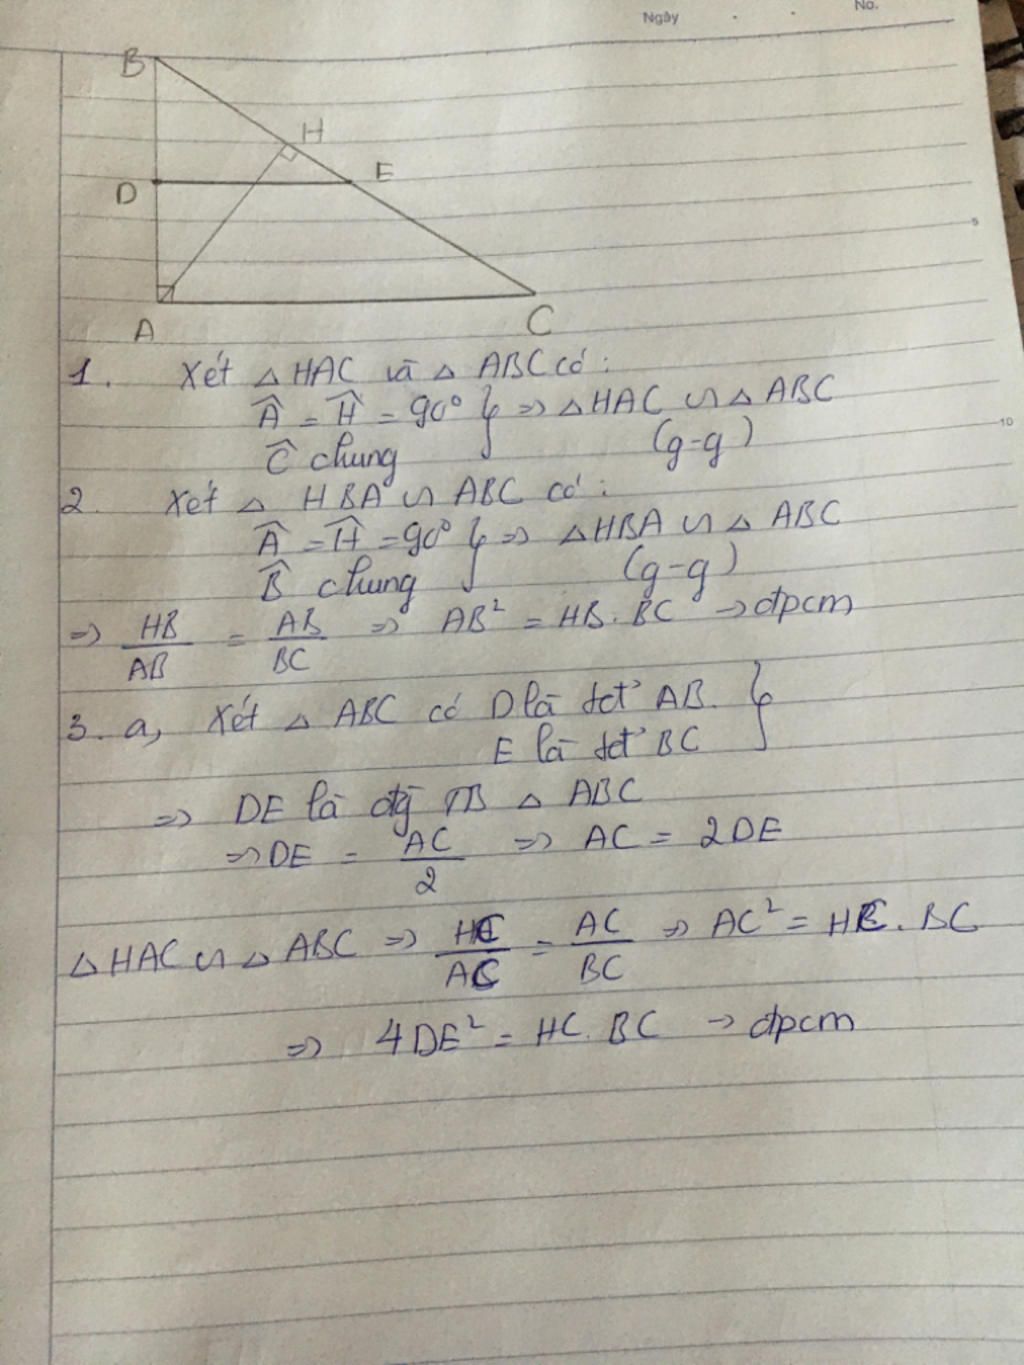 Ngày . . No.
B
H
E
D
A
C
5
10
1. Xét △ HAC và △ ABC có :
Â = Ĥ = 90° } => △ HAC ∽ △ ABC
Ĉ chung (g-g)
2. Xét △ HBA ∽ ABC có :
Â = Ĥ = 90° } => △ HBA ∽ △ ABC
B̂ chung (g-g)
=> HB/AB = AB/BC => AB² = HB. BC → đpcm
3. a, Xét △ ABC có D là tđ AB. }
E là tđ BC
=> DE là đg TB △ ABC
=> DE = AC/2 => AC = 2DE
△ HAC ∽ △ ABC => HC/AC = AC/BC => AC² = HC. BC
=> 4DE² = HC. BC → đpcm